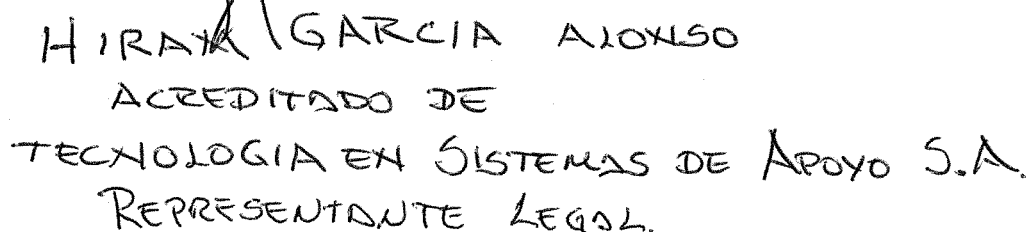 HIRAM GARCIA ALONSO
ACREDITADO DE
TECNOLOGIA EN SISTEMAS DE APOYO S.A.
REPRESENTANTE LEGAL.